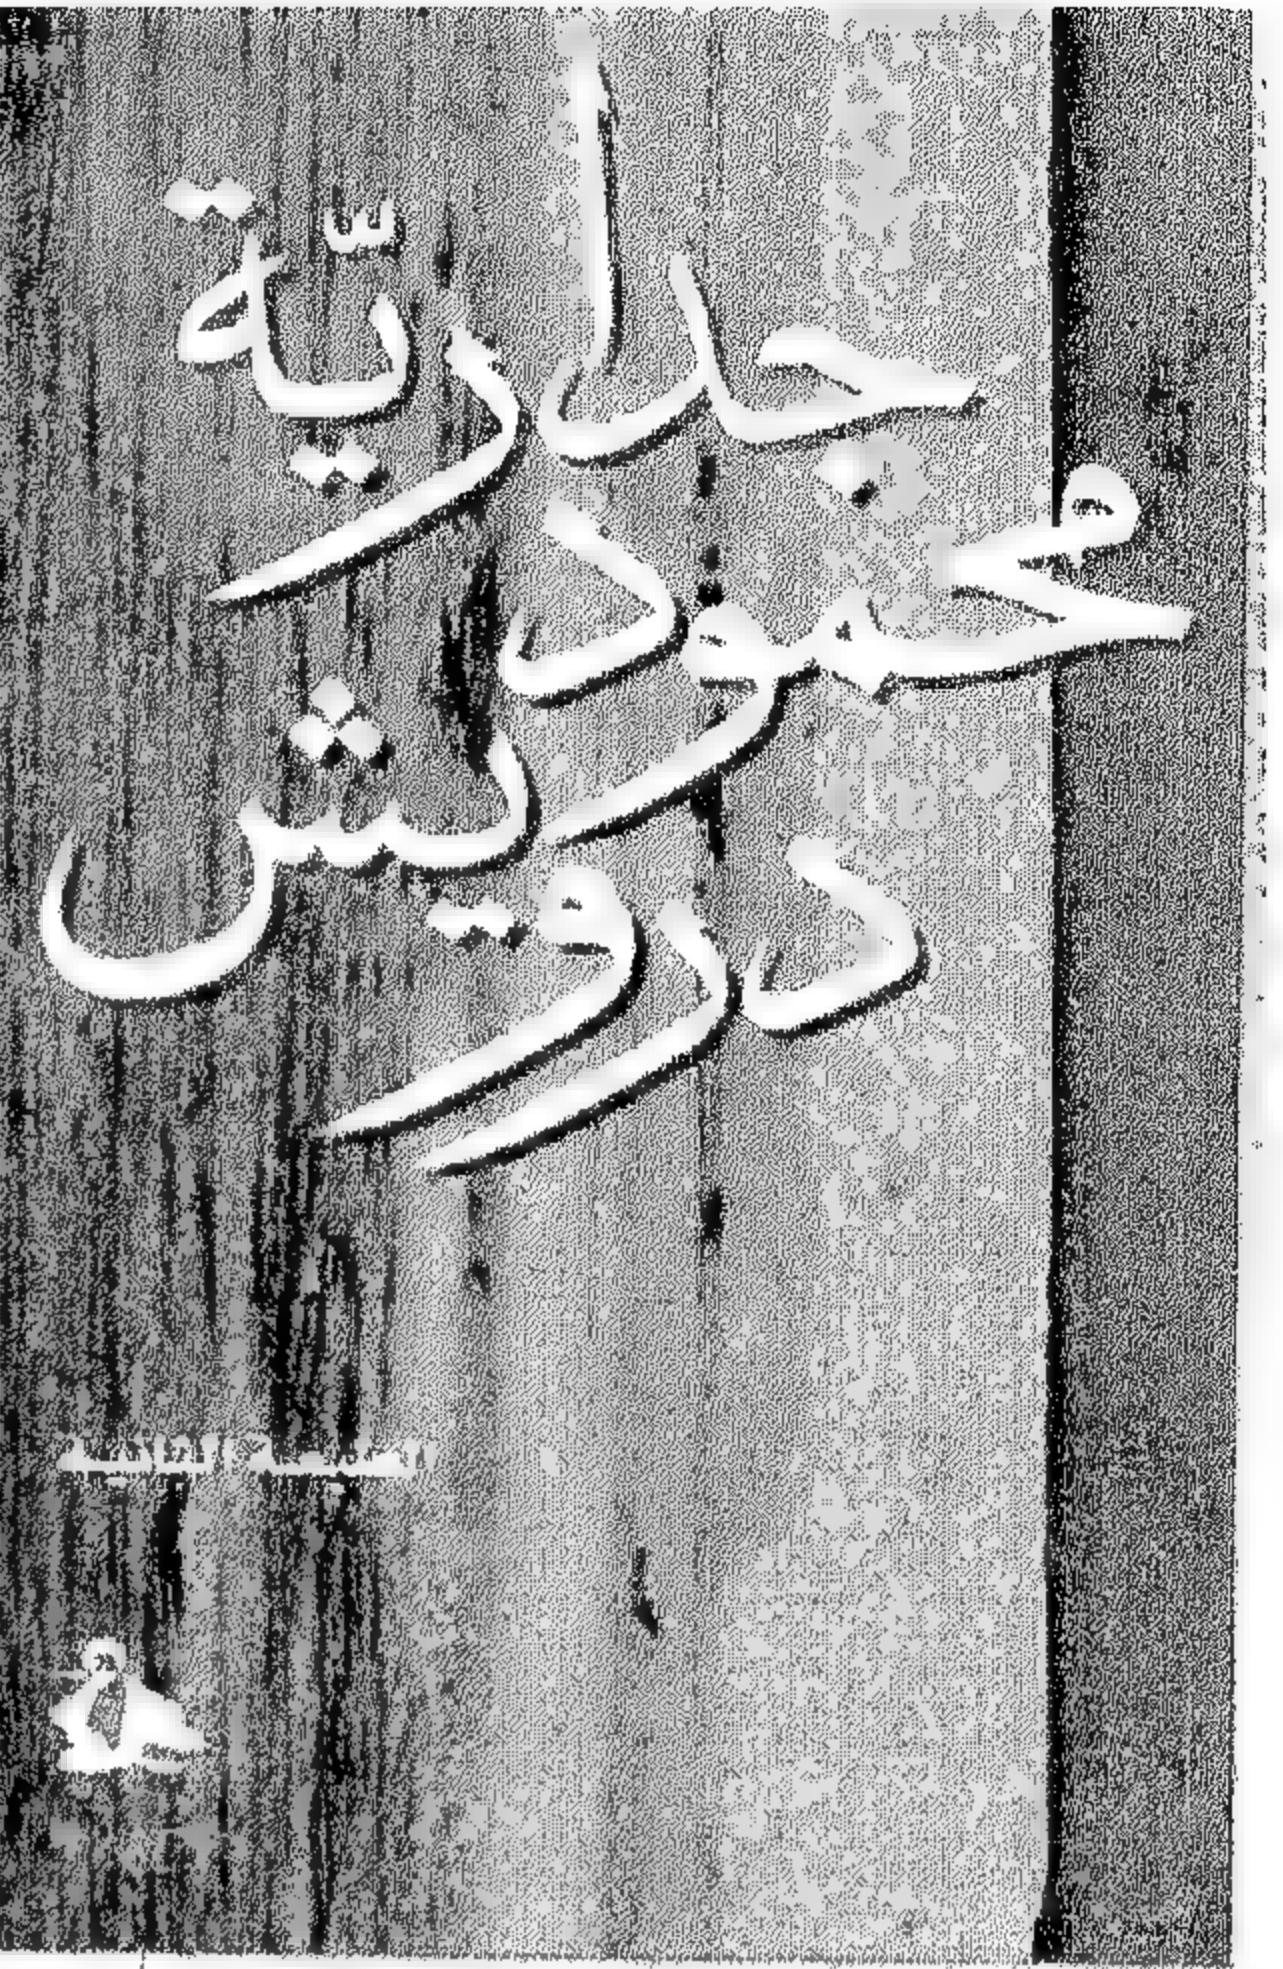 جداريّة
محمود
درويش